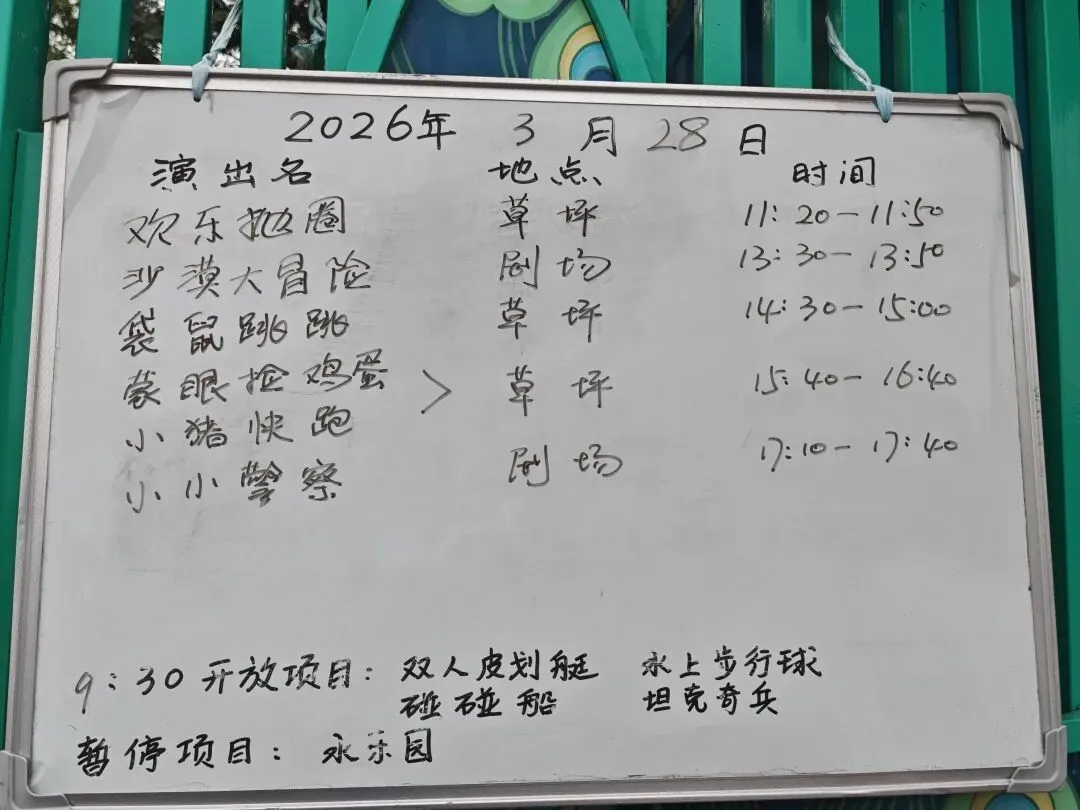 2026年 3月28日
演出名 地点 时间
欢乐抛圈 草坪 11:20-11:50
沙漠大冒险 剧场 13:30-13:50
袋鼠跳跳 草坪 14:30-15:00
蒙眼捡鸡蛋 > 草坪 15:40-16:40
小猪快跑
小小警察 剧场 17:10-17:40
9:30开放项目: 双人皮划艇 水上步行球
碰碰船 坦克奇兵
暂停项目: 水乐园